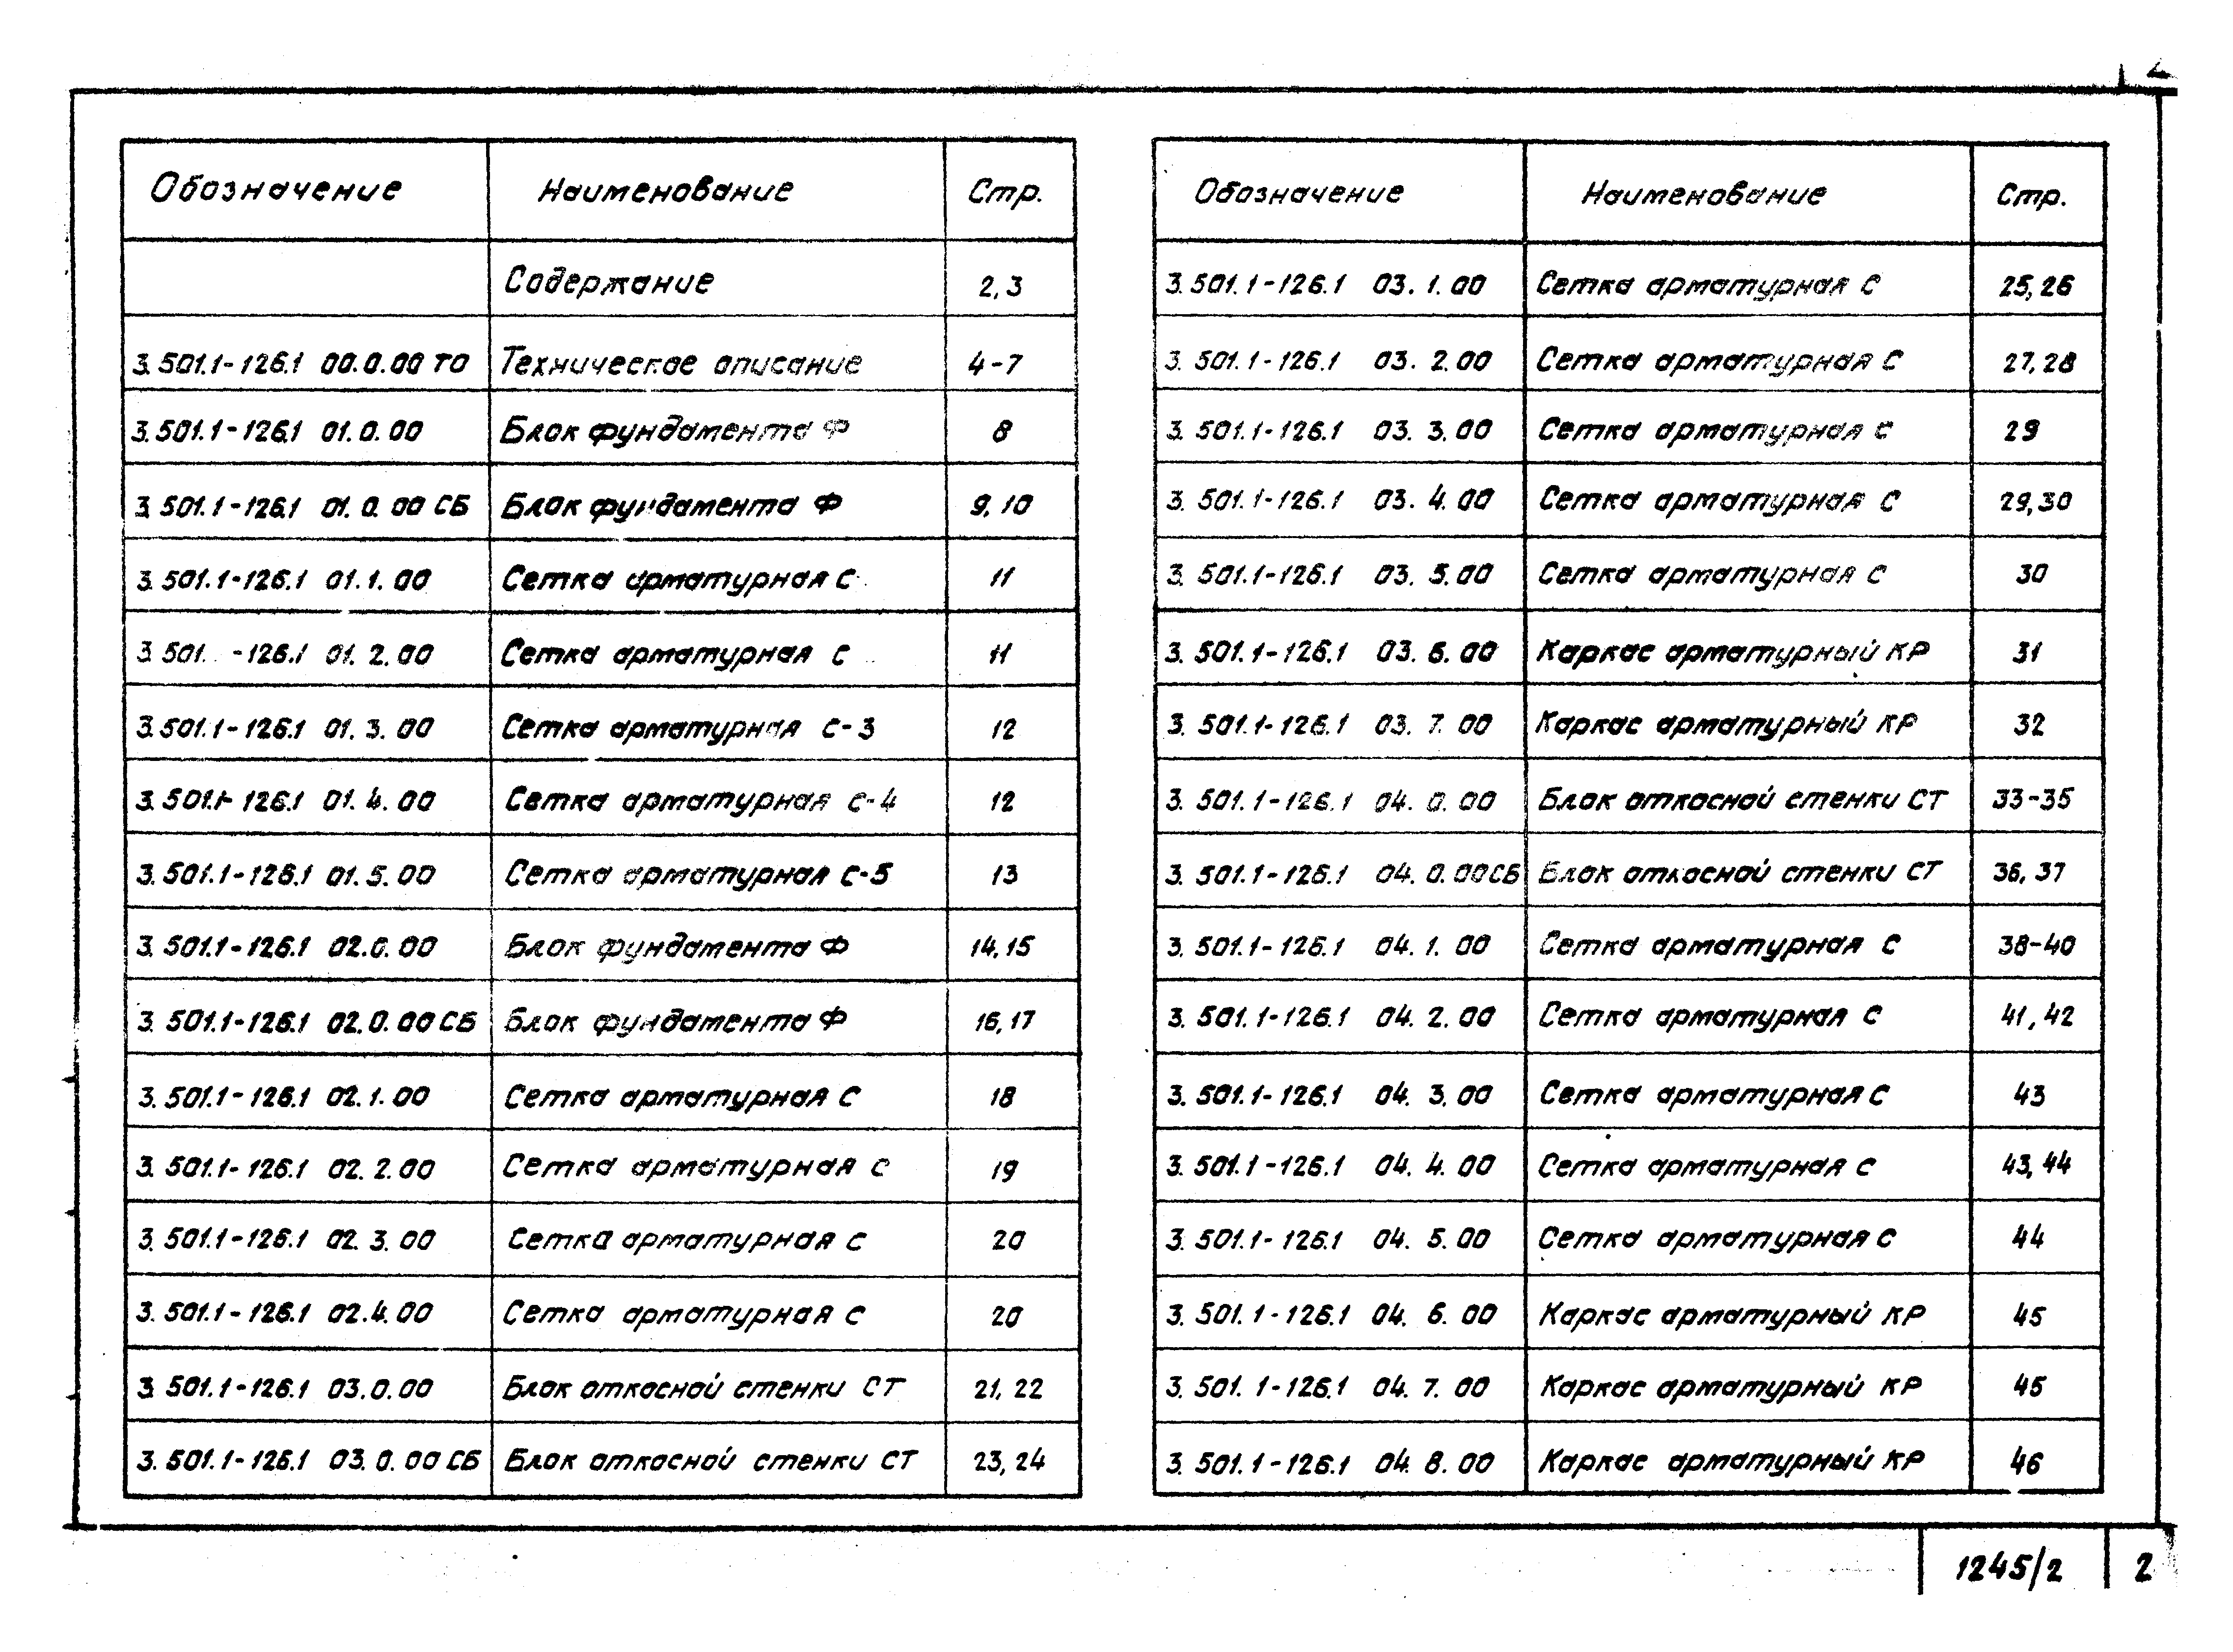 Обозначение Наименование Стр.
Содержание 2,3
3.501.1-126.1 00.0.00 ТО Техническое описание 4-7
3.501.1-126.1 01.0.00 Блок фундамента Ф 8
3.501.1-126.1 01.0.00 СБ Блок фундамента Ф 9,10
3.501.1-126.1 01.1.00 Сетка арматурная С 11
3.501. -126.1 01.2.00 Сетка арматурная С 11
3.501.1-126.1 01.3.00 Сетка арматурная С-3 12
3.501.1-126.1 01.4.00 Сетка арматурная С-4 12
3.501.1-126.1 01.5.00 Сетка арматурная С-5 13
3.501.1-126.1 02.0.00 Блок фундамента Ф 14,15
3.501.1-126.1 02.0.00 СБ Блок фундамента Ф 16,17
3.501.1-126.1 02.1.00 Сетка арматурная С 18
3.501.1-126.1 02.2.00 Сетка арматурная С 19
3.501.1-126.1 02.3.00 Сетка арматурная С 20
3.501.1-126.1 02.4.00 Сетка арматурная С 20
3.501.1-126.1 03.0.00 Блок откосной стенки СТ 21,22
3.501.1-126.1 03.0.00 СБ Блок откосной стенки СТ 23,24
Обозначение Наименование Стр.
3.501.1-126.1 03.1.00 Сетка арматурная С 25,26
3.501.1-126.1 03.2.00 Сетка арматурная С 27,28
3.501.1-126.1 03.3.00 Сетка арматурная С 29
3.501.1-126.1 03.4.00 Сетка арматурная С 29,30
3.501.1-126.1 03.5.00 Сетка арматурная С 30
3.501.1-126.1 03.6.00 Каркас арматурный КР 31
3.501.1-126.1 03.7.00 Каркас арматурный КР 32
3.501.1-126.1 04.0.00 Блок откосной стенки СТ 33-35
3.501.1-126.1 04.0.00 СБ Блок откосной стенки СТ 36,37
3.501.1-126.1 04.1.00 Сетка арматурная С 38-40
3.501.1-126.1 04.2.00 Сетка арматурная С 41,42
3.501.1-126.1 04.3.00 Сетка арматурная С 43
3.501.1-126.1 04.4.00 Сетка арматурная С 43,44
3.501.1-126.1 04.5.00 Сетка арматурная С 44
3.501.1-126.1 04.6.00 Каркас арматурный КР 45
3.501.1-126.1 04.7.00 Каркас арматурный КР 45
3.501.1-126.1 04.8.00 Каркас арматурный КР 46
1245/2 2